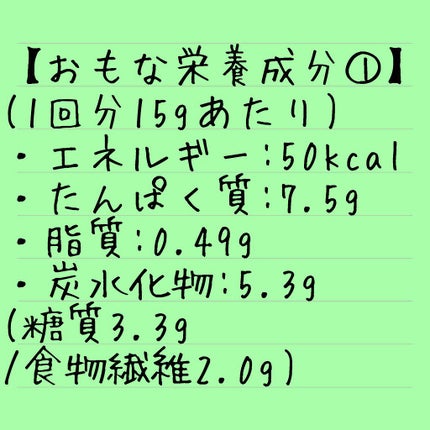 【おもな栄養成分①】
(1回分15gあたり)
・エネルギー:50kcal
・たんぱく質:7.5g
・脂質:0.49g
・炭水化物:5.3g
(糖質3.3g
/食物繊維2.0g)